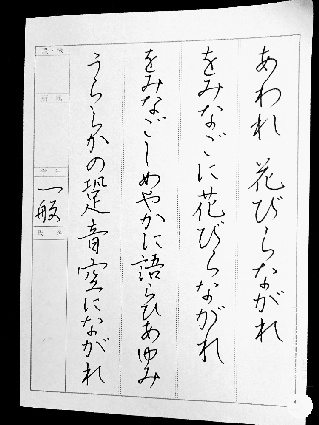 あわれ 花びらながれ
をみなごに花びらながれ
をみなごしめやかに語らひあゆみ
うららかの跫音空にながれ
一般